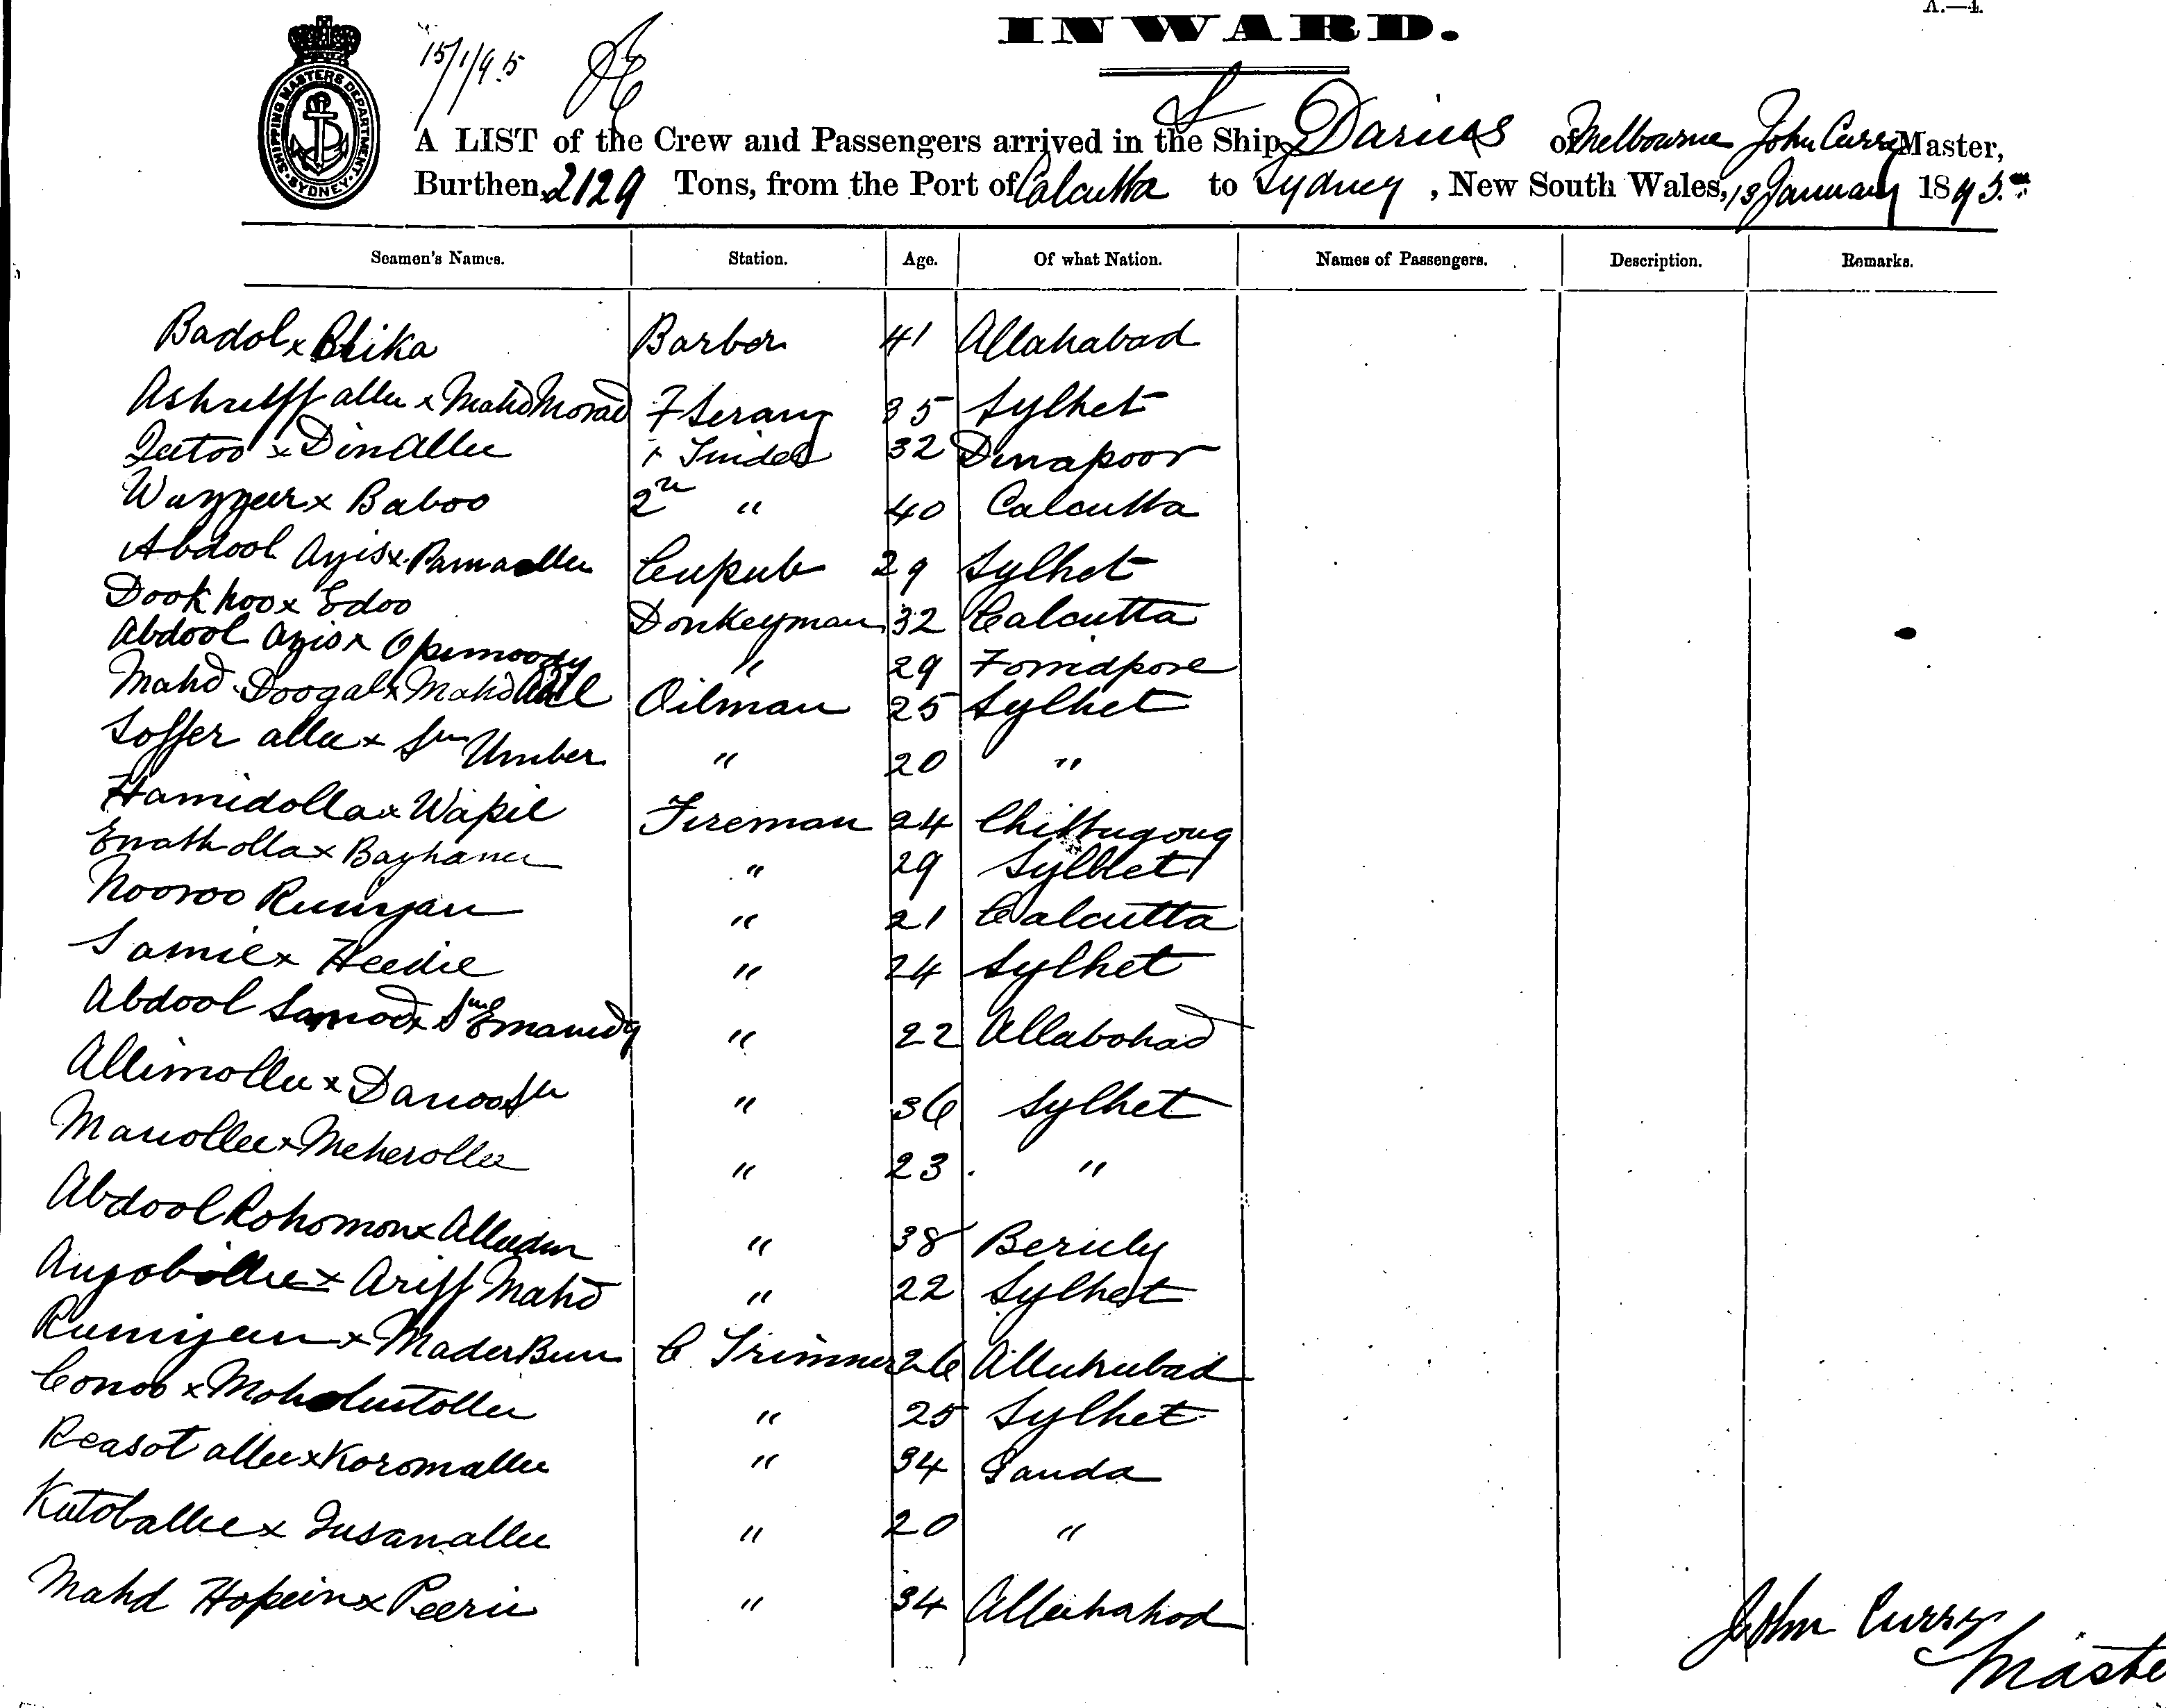 A.—4.
INWARD.
15/1/95
SHIPPING MASTERS DEPARTMENT SYDNEY
A LIST of the Crew and Passengers arrived in the Ship Darius of Melbourne John Curry Master,
Burthen 2129 Tons, from the Port of Calcutta to Sydney, New South Wales, 13 January 1895.
Seamen's Names. Station. Age. Of what Nation. Names of Passengers. Description. Remarks.
Badol x Bhika Barber 41 Allahabad
Ashruff allee x Mahd Morad F Serang 35 Sylhet
x Din Allee Tindal 32 Dinapoor
Wuzzeer x Baboo 2n " 40 Calcutta
Abdool Azis x 29 Sylhet
Dookhoo x Edoo Donkeyman 32 Calcutta
Abdool Azis x " 29
Mahd Doogal x Mahd Oilman 25 Sylhet
Soffer allee x Umber " 20 "
Hamidolla x Wapil Fireman 24 Chittagong
Enatholla x " 29 Sylhet
Nooroo Rumjan " 21 Calcutta
Samil x Heedie " 24 Sylhet
Abdool Samod x " 22 Allabohad
Allimollee x " 36 Sylhet
Manollee x Meherollee " 23 "
Abdool Rohomon x Alleedin " 38
x Ariff Mahd " 22 Sylhet
Rumjan x C Trimmer 26 Allahabad
Conoo x " 25 Sylhet
Reasot allee x Koromallee " 34
Kutoballee x " 20 "
Mahd Hopein x Peerie " 34 Allahahod
John Curry
Maste